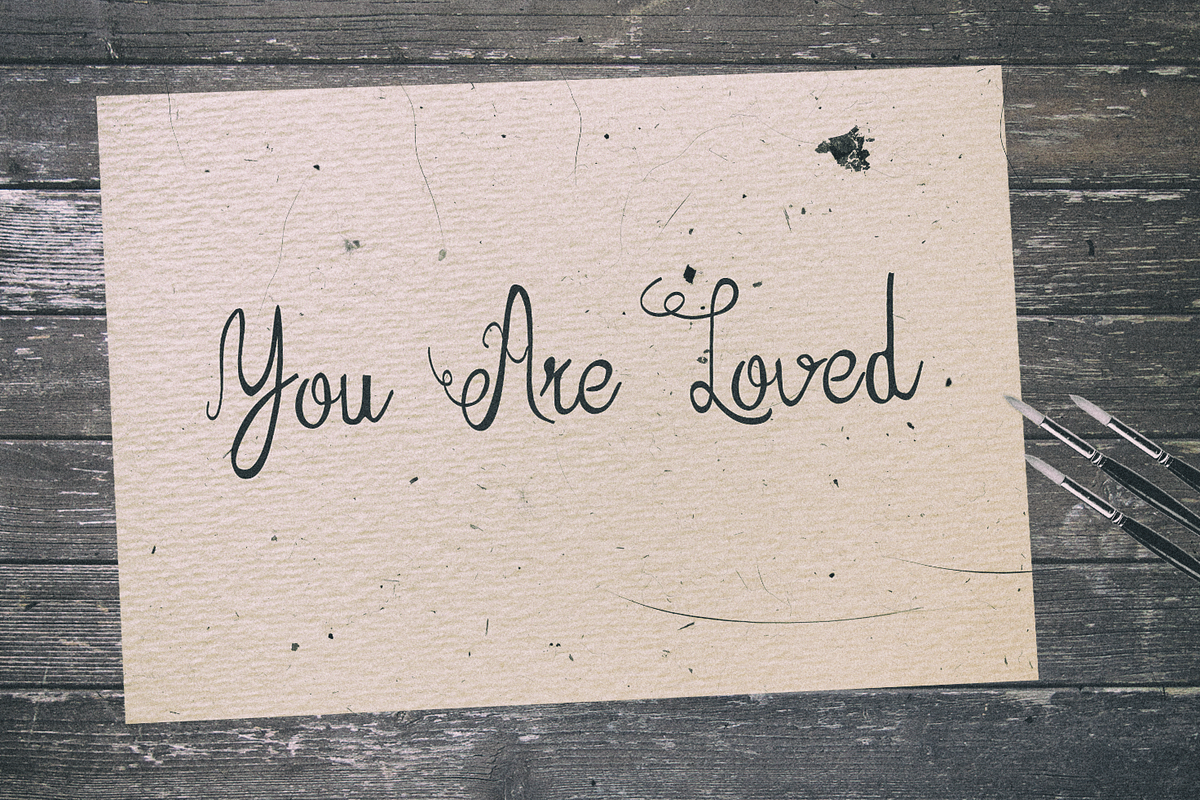 You Are Loved.